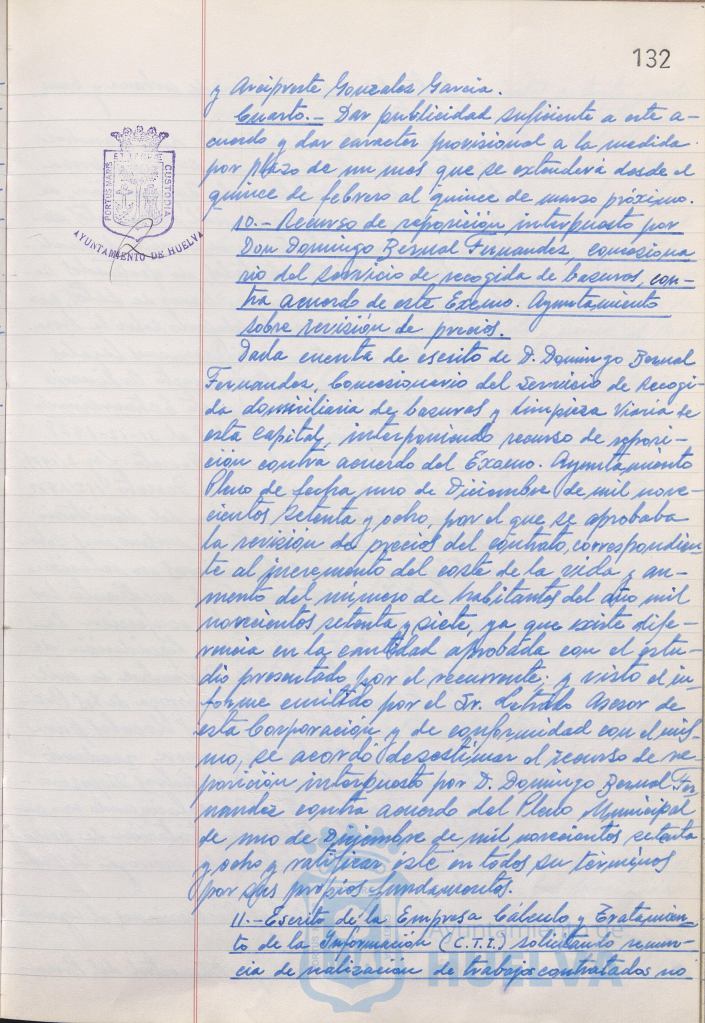 132
y Arcipreste Gonzalez Garcia.
Cuarto.- Dar publicidad suficiente a este a-
cuerdo y dar caracter provisional a la medida
por plazo de un mes que se extenderá desde el
quince de febrero al quince de marzo próximo.
10.- Recurso de reposición interpuesto por
Don Domingo Bernal Fernandez, concesiona
rio del servicio de recogida de basuras, con-
tra acuerdo de este Excmo. Ayuntamiento
sobre revisión de precios.
Dada cuenta de escrito de D. Domingo Bernal
Fernandez, Concesionario del Servicio de Recogi-
da domiciliaria de basuras y Limpieza Viaria de
esta capital, interponiendo recurso de reposi-
ción contra acuerdo del Excmo. Ayuntamiento
Pleno de fecha uno de Diciembre de mil nove-
cientos setenta y ocho, por el que se aprobaba
la revisión de precios del contrato, correspondien-
te al incremento del coste de la vida y au-
mento del número de habitantes del año mil
novecientos setenta y siete, ya que existe dife-
rencia en la cantidad aprobada con el estu-
dio presentado por el recurrente; y visto el in-
forme emitido por el Sr. Letrado Asesor de
esta Corporación y de conformidad con el mis-
mo, se acordó desestimar el recurso de re-
posición interpuesto por D. Domingo Bernal Fer
nandez contra acuerdo del Pleno Municipal
de uno de Diciembre de mil novecientos setenta
y ocho y ratificar este en todos su términos
por sus propios fundamentos.
11.- Escrito de la Empresa Cálculo y Tratamien-
to de la Información (C.T.I.) solicitando renun-
cia de realización de trabajos contratados no
PORTUS MARIS ET TERRE CUSTODIA
AYUNTAMIENTO DE HUELVA
Ayuntamiento de
HUELVA